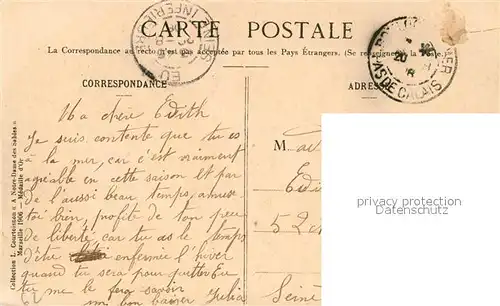 CARTE POSTALE
La Correspondance au recto n'est pas acceptée par tous les Pays Étrangers. (Se renseigner à la Poste.)
CORRESPONDANCE
ADRES
Ma chère Edith
Je suis contente que tu es
à la mer, car c'est vraiment
agréable en cette saison et par
de l'aussi beau temps, amuse
toi bien, profite de ton peu
de liberté, car tu as le temps
d'être enfermée l'hiver
quand tu sera pour quitter Eu
tu me le fera savoir
un bon baiser Julia
M
Edi
5 
Seine
EU
PAS DE CALAIS
20
Collection L. Gouverneur « A Notre-Dame des Sables »
Marseille 1906 - Médaille d'Or
privacy protection
Datenschutz